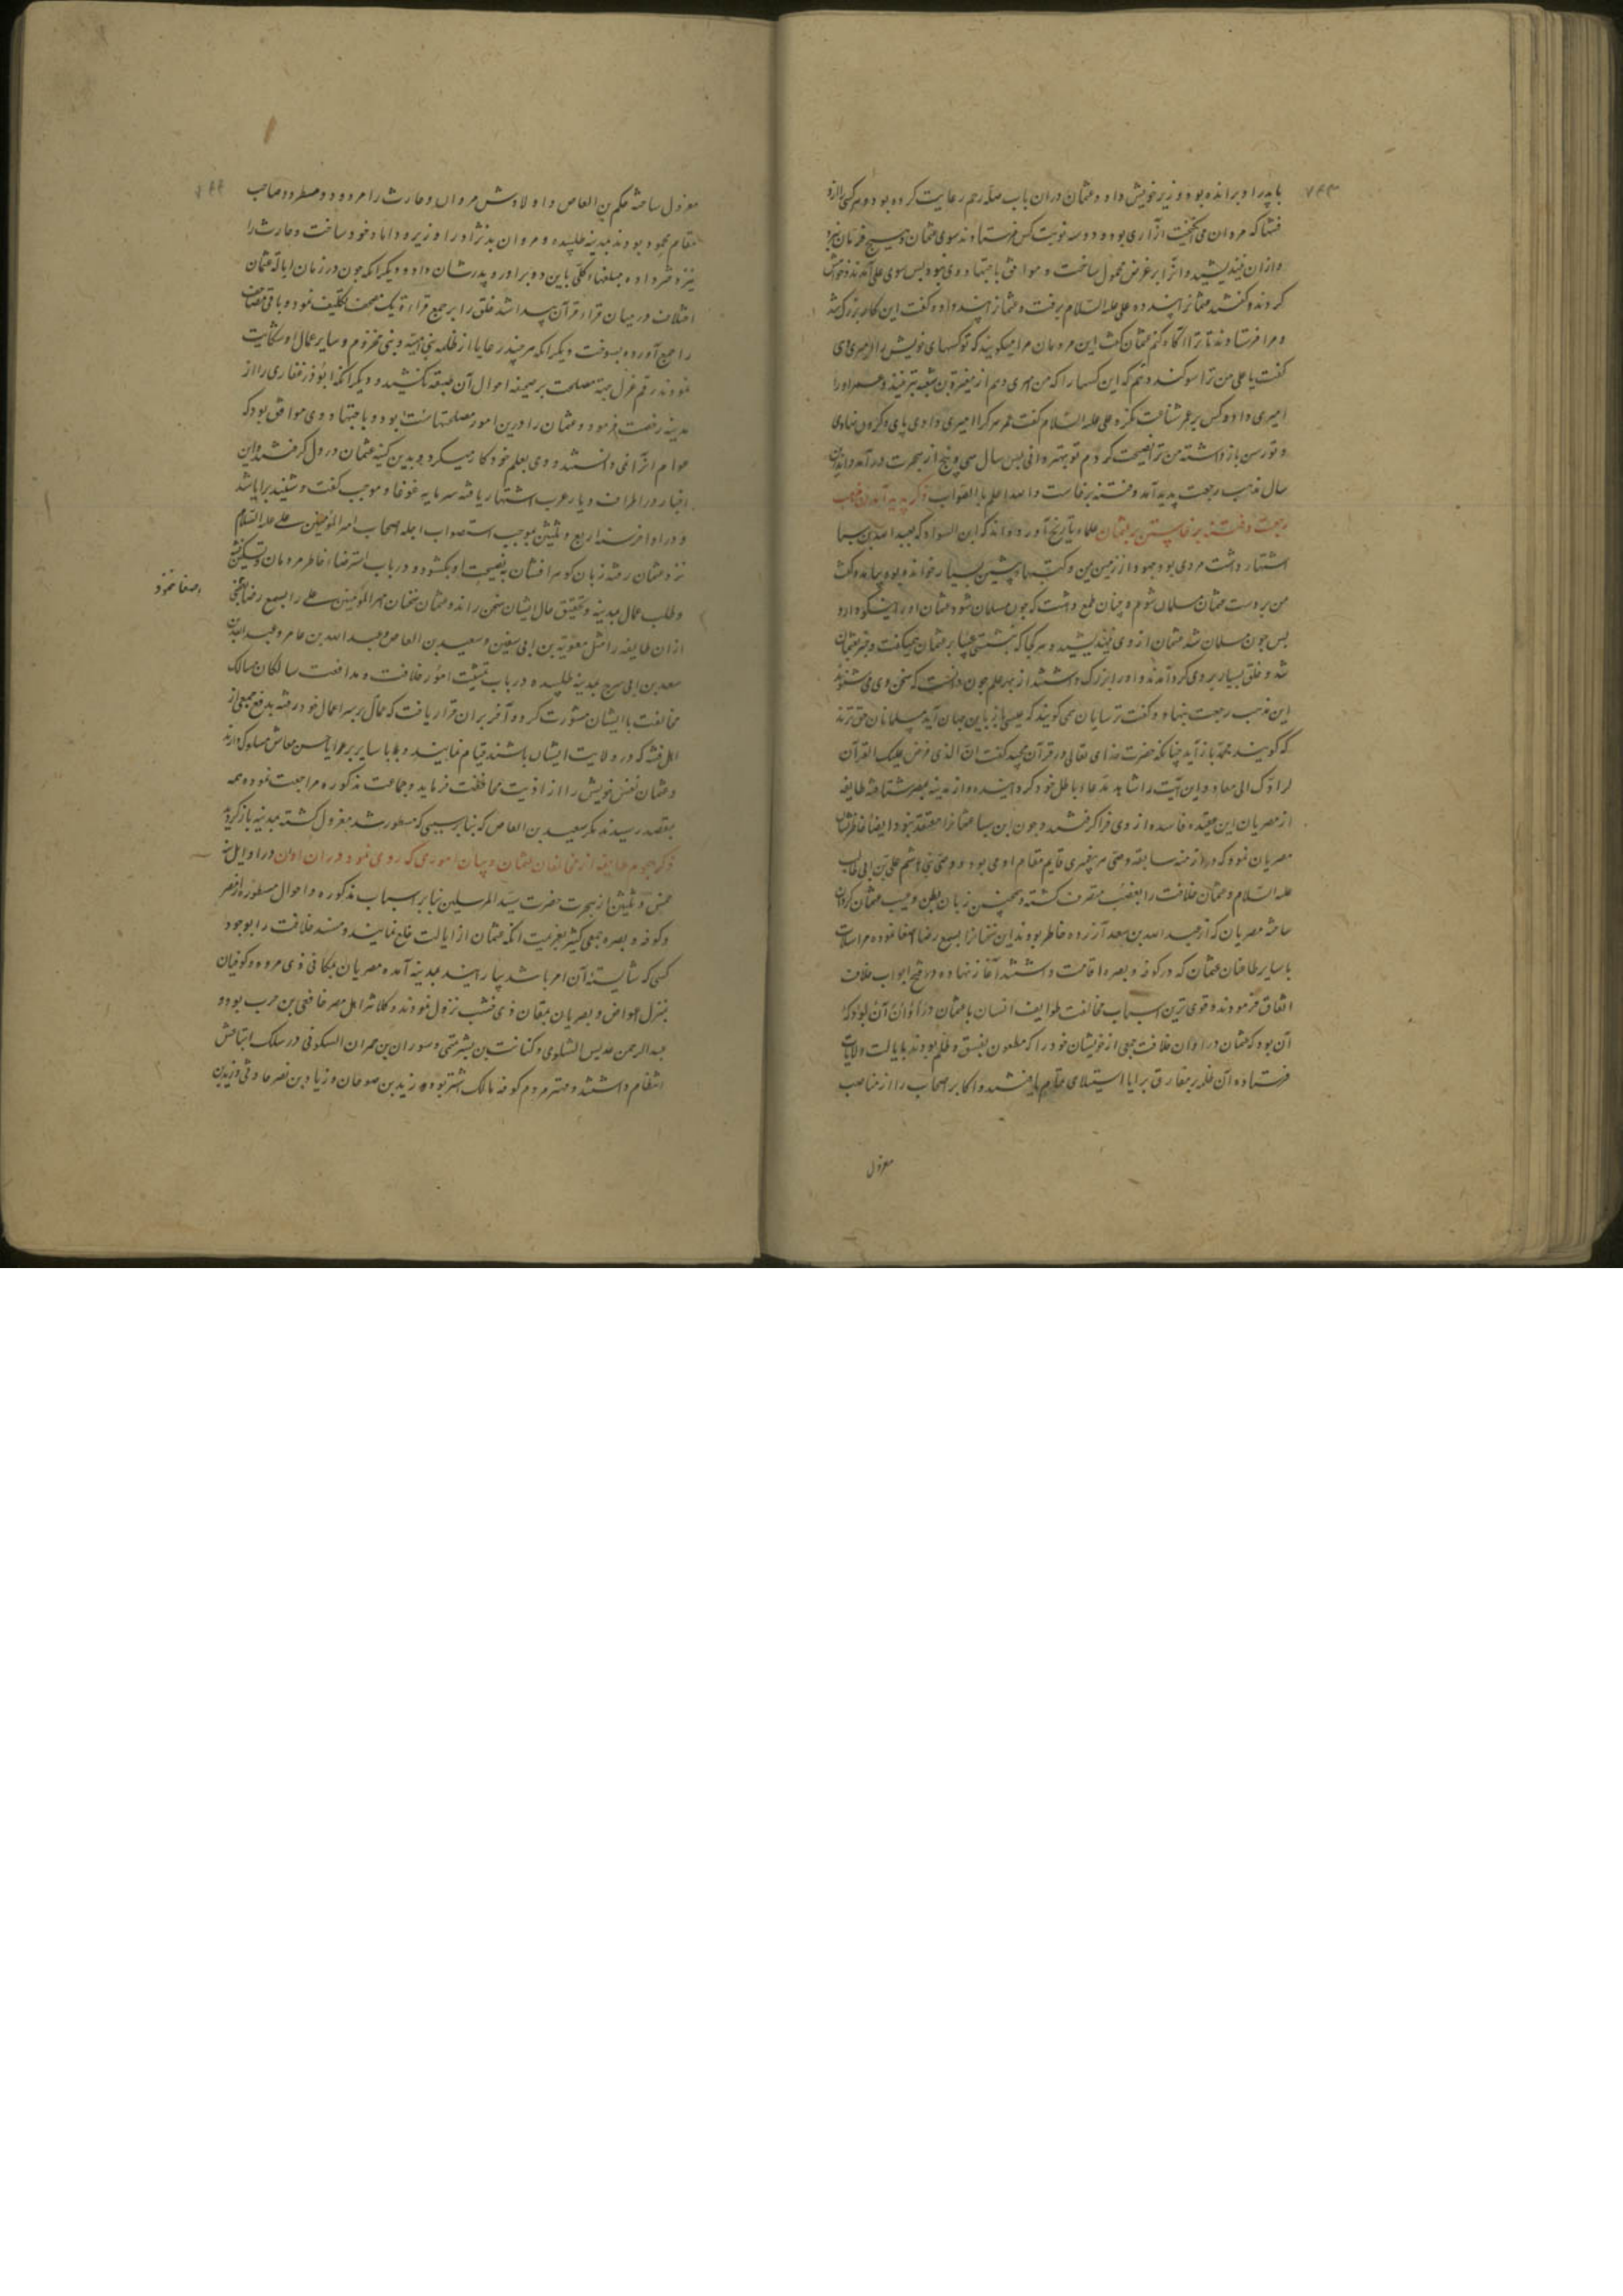 با پدر او برانده بود وزیر خویش داد و عثمان در آن باب صله رحم رعایت کرده بود و هر کسی را از
فتنها که مروان می انگیخت آزاری بود و دو سه نوبت کس فرستادند سوی عثمان و هیچ فرمان نبرد
و از آن نیندیشید و آنرا بر غرض محمول ساخت و موافق باجتهاد وی نبود پس سوی علی آمدند و خواهش
کردند و گفتند عثمانرا پند ده علی علیه السلام برفت و عثمانرا پند داده گفت این کار بزرگ شد
و مرا فرستادند تا ترا آگاه کنم عثمان گفت این مردمان مرا میگویند که تو کسهای خویش را امیری دهی
گفت یا علی من ترا سوگند دهم که این کسها را که من مهری دهم از مغیرة بن شعبه بترنیند و عمر او را
امیری داد و کس بر عمر شناعت نکرد علی علیه السلام گفت عمر هر کرا امیری دادی پای بر گردن نهادی
و تو رسن باز داشته من ترا نصیحت کردم تو بهتر دانی پس سال سی و پنج از هجرت درآمد و اندرین
سال مذهب رجعت پدید آمد و فتنه برخاست والله اعلم بالصواب ذکر پدید آمدن مذهب
رجعت و فتنه برخاستن بر عثمان علماء تاریخ آورده اند که ابن السوداء که بعبد الله بن سبا
اشتهار داشت مردی بود جهود از زمین یمن و کتبهاء پیشین بسیار خوانده بود بیامد و گفت
من بر دست عثمان مسلمان شوم و چنان طمع داشت که چون مسلمان شود عثمان او را نیکو دارد
پس چون مسلمان شد عثمان از وی نیندیشید و هر کجا که بنشستی عیبها بر عثمان همیگفت و خبر بعثمان
شد و خلق بسیار بر وی گرد آمدند و او را بزرگ داشتند از بهر علم چون دانست که سخن وی می شنوند
این مذهب رجعت بنهاد و گفت ترسایان می گویند که عیسی باز باین جهان آید مسلمانان حق ترند
که گویند محمد باز آید چنانکه حضرت خدای تعالی در قرآن مجید گفت ان الذی فرض علیک القرآن
لرادک الی معاد و این آیت را شاهد مدعاء باطل خود گردانیده و از مدینه بمصر شتافته طایفه
از مصریان این عقیده فاسده از وی فرا گرفتند و چون ابن سبا عثمانرا معتقد نبود ایضا خاطرنشان
مصریان نمود که در ازمنه سابقه وصی هر پیغمبری قایم مقام او می بود و وصی نبی هاشم علی بن ابی طالب
علیه السلام و عثمان خلافت را بغصب متصرف گشته و همچنین زبان بطعن و عیب عثمان گردان
ساخته مصریان که از عبد الله بن سعد آزرده خاطر بودند این سخنانرا بسمع رضا اصغا نموده مراسلات
با سایر طاغیان عثمان که در کوفه و بصره اقامت داشتند آغاز نهاده در فتح ابواب خلاف
اتفاق فرمودند و قوی ترین اسباب مخالفت طوایف انسان با عثمان در آن اوان آن بود که
آن بود که عثمان در اوان خلافت جمعی از خویشان خود را که مطعون بفسق و ظلم بودند بایالت ولایات
فرستاده آن ظلمه بر مفارق برایا استیلای تمام یافتند و اکابر اصحاب را از مناصب
معزول
معزول ساخته حکم بن العاص و اولادش مروان و حارث را مردود و مطرود صاحب
مقام محمود بودند بمدینه طلبیده و مروان بدنژاد را وزیر و داماد خود ساخت و حارث را
نیز دختر داده مبلغهاء کلی باین دو برادر و پدرشان داد و دیگر آنکه چون در زمان ایالة عثمان
اختلاف در میان قراء قرآن پیدا شد خلق را بر جمع قراءة یک مصحف تکلیف نمود و باقی مصاحف
را جمع آورده بسوخت و دیگر آنکه هر چند رعایا از ظلمه بنی امیه و بنی مخزوم و سایر عمال او شکایت
نمودند رقم عزل جهة مصلحت بر صحیفه احوال آن طبقه نکشید و دیگر آنکه ابوذر غفاری را از
مدینه رخصت فرمود و عثمان را درین امور مصلحتها بود و باجتهاد وی موافق بود که
عوام آنرا نمی دانستند و وی بعلم خود کار میکرد و بدین کینه عثمان در دل گرفتند و این
اخبار در اطراف دیار عرب اشتهار یافته سرمایه غوغا و موجب گفت و شنید برایا شد
و در اواخر سنه اربع و ثلثین بموجب استصواب اجله اصحاب امیر المؤمنین علی علیه السلام
نزد عثمان رفته زبان گوهرافشان به نصیحت او بگشود و در باب استرضاء خاطر مردمان و تسکین فتنه
و طلب عمال بمدینه و تحقیق حال ایشان سخن راند و عثمان سخنان امیر المؤمنین علی را بسمع رضا
اصغا نمود
از آن طایفه را مثل معویة بن ابی سفین و سعید بن العاص و عبد الله بن عامر و عبد الله بن
سعد بن ابی سرح بمدینه طلبیده در باب تمشیت امور خلافت و مدافعت سالکان مسالک
مخالفت با ایشان مشورت کرده آخر بر آن قرار یافت که عمال بر سر اعمال خود رفته بدفع جمعی از
اهل فتنه که در ولایت ایشان باشند قیام نمایند و با سایر برایا حسن معاش مسلوک دارند
و عثمان نفس خویش را از اذیت محافظت فرماید و جماعت مذکوره مراجعت نموده همه
بمقصد رسیدند مگر سعید بن العاص که بنا بر سببی که مسطور شد معزول گشته بمدینه باز گردید
ذکر هجوم طایفه از مخالفان عثمان و بیان اموری که روی نمود در آن اوان در اوایل سنه
خمس و ثلثین از هجرت حضرت سید المرسلین بنا بر اسباب مذکوره و احوال مسطوره از مصر
و کوفه و بصره جمعی کثیر بعزیمت آنکه عثمان از ایالت خلع نمایند و مسند خلافت را بوجود
کسی که شایسته آن امر باشد بیارایند بمدینه آمده مصریان بمکانی ذی مروه و کوفیان
بمنزل اعواض و بصریان بمقان ذی خشب نزول نمودند و کلانتر اهل مصر غافقی بن حرب بود و
عبد الرحمن عدیس البلوی و کنانت بن بشر و سودان بن حمران السکونی در سلک اتباعش
انتظام داشتند و مهتر مردم کوفه مالک اشتر بود و زید بن صوحان و زیاد بن نصر حارثی و یزید بن